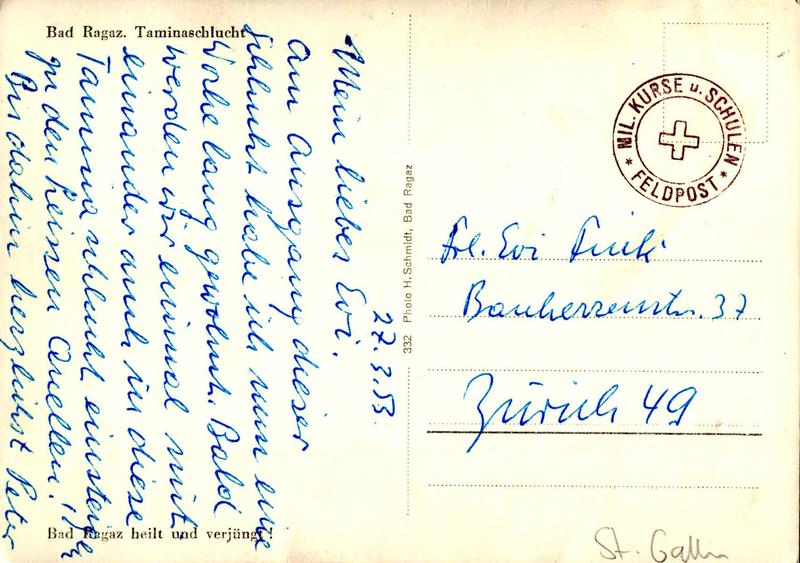 Bad Ragaz. Taminaschlucht
27.3.53.
Mein liebes Evi.
Am Ausgang dieser
Schlucht habe ich nun eine
Woche lang gewohnt. Bald
werden wir einmal mit
einander auch in diese
Taminaschlucht einsteigen
zu den heissen Quellen!
Bis dahin herzlichst Peter
Bad Ragaz heilt und verjüngt!
332 Photo H. Schmidt, Bad Ragaz
MIL. KURSE u. SCHULEN
* FELDPOST *
Frl. Evi
Bauherrenstr. 37
Zürich 49
St. Gallen